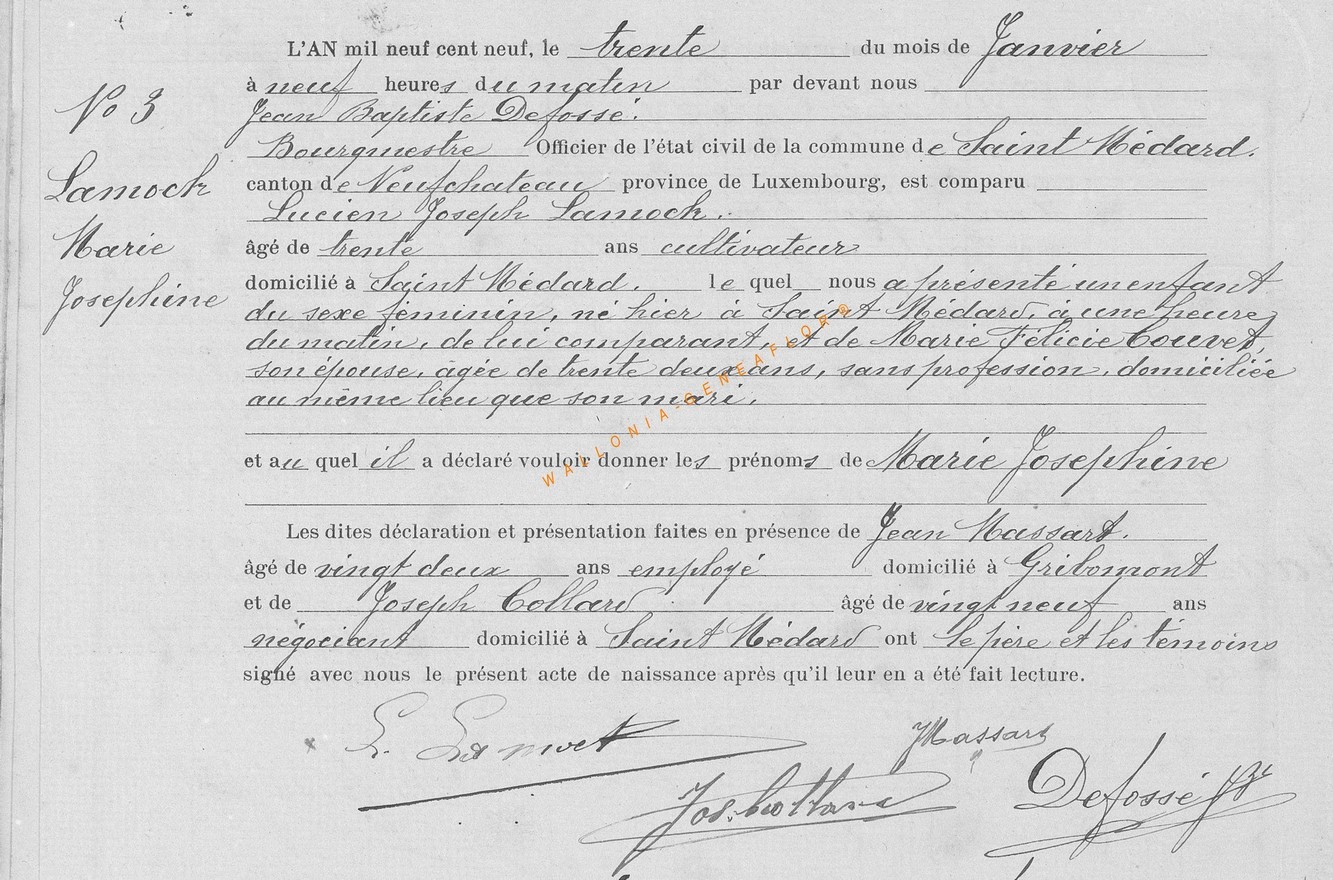 No 3
Lamock
Marie
Josephine
L'AN mil neuf cent neuf, le trente du mois de Janvier
à neuf heures du matin par devant nous
Jean Baptiste Defossé.
Bourgmestre Officier de l'état civil de la commune de Saint Médard.
canton de Neufchateau province de Luxembourg, est comparu
Lucien Joseph Lamock.
âgé de trente ans cultivateur
domicilié à Saint Médard. le quel nous a présenté un enfant
du sexe féminin, né hier à Saint Médard, à une heure
du matin, de lui comparant, et de Marie Félicie Couvet,
son épouse, agée de trente deux ans, sans profession, domiciliée
au même lieu que son mari.
et au quel il a déclaré vouloir donner les prénoms de Marie Josephine
Les dites déclaration et présentation faites en présence de Jean Massart.
âgé de vingt deux ans employé domicilié à Gribomont
et de Joseph Collard âgé de vingt neuf ans
négociant domicilié à Saint Médard ont le père et les témoins
signé avec nous le présent acte de naissance après qu'il leur en a été fait lecture.
L. Lamock
JMassart
Jos. Collard
Defossé
WALLONIA-GENEAFLOR®